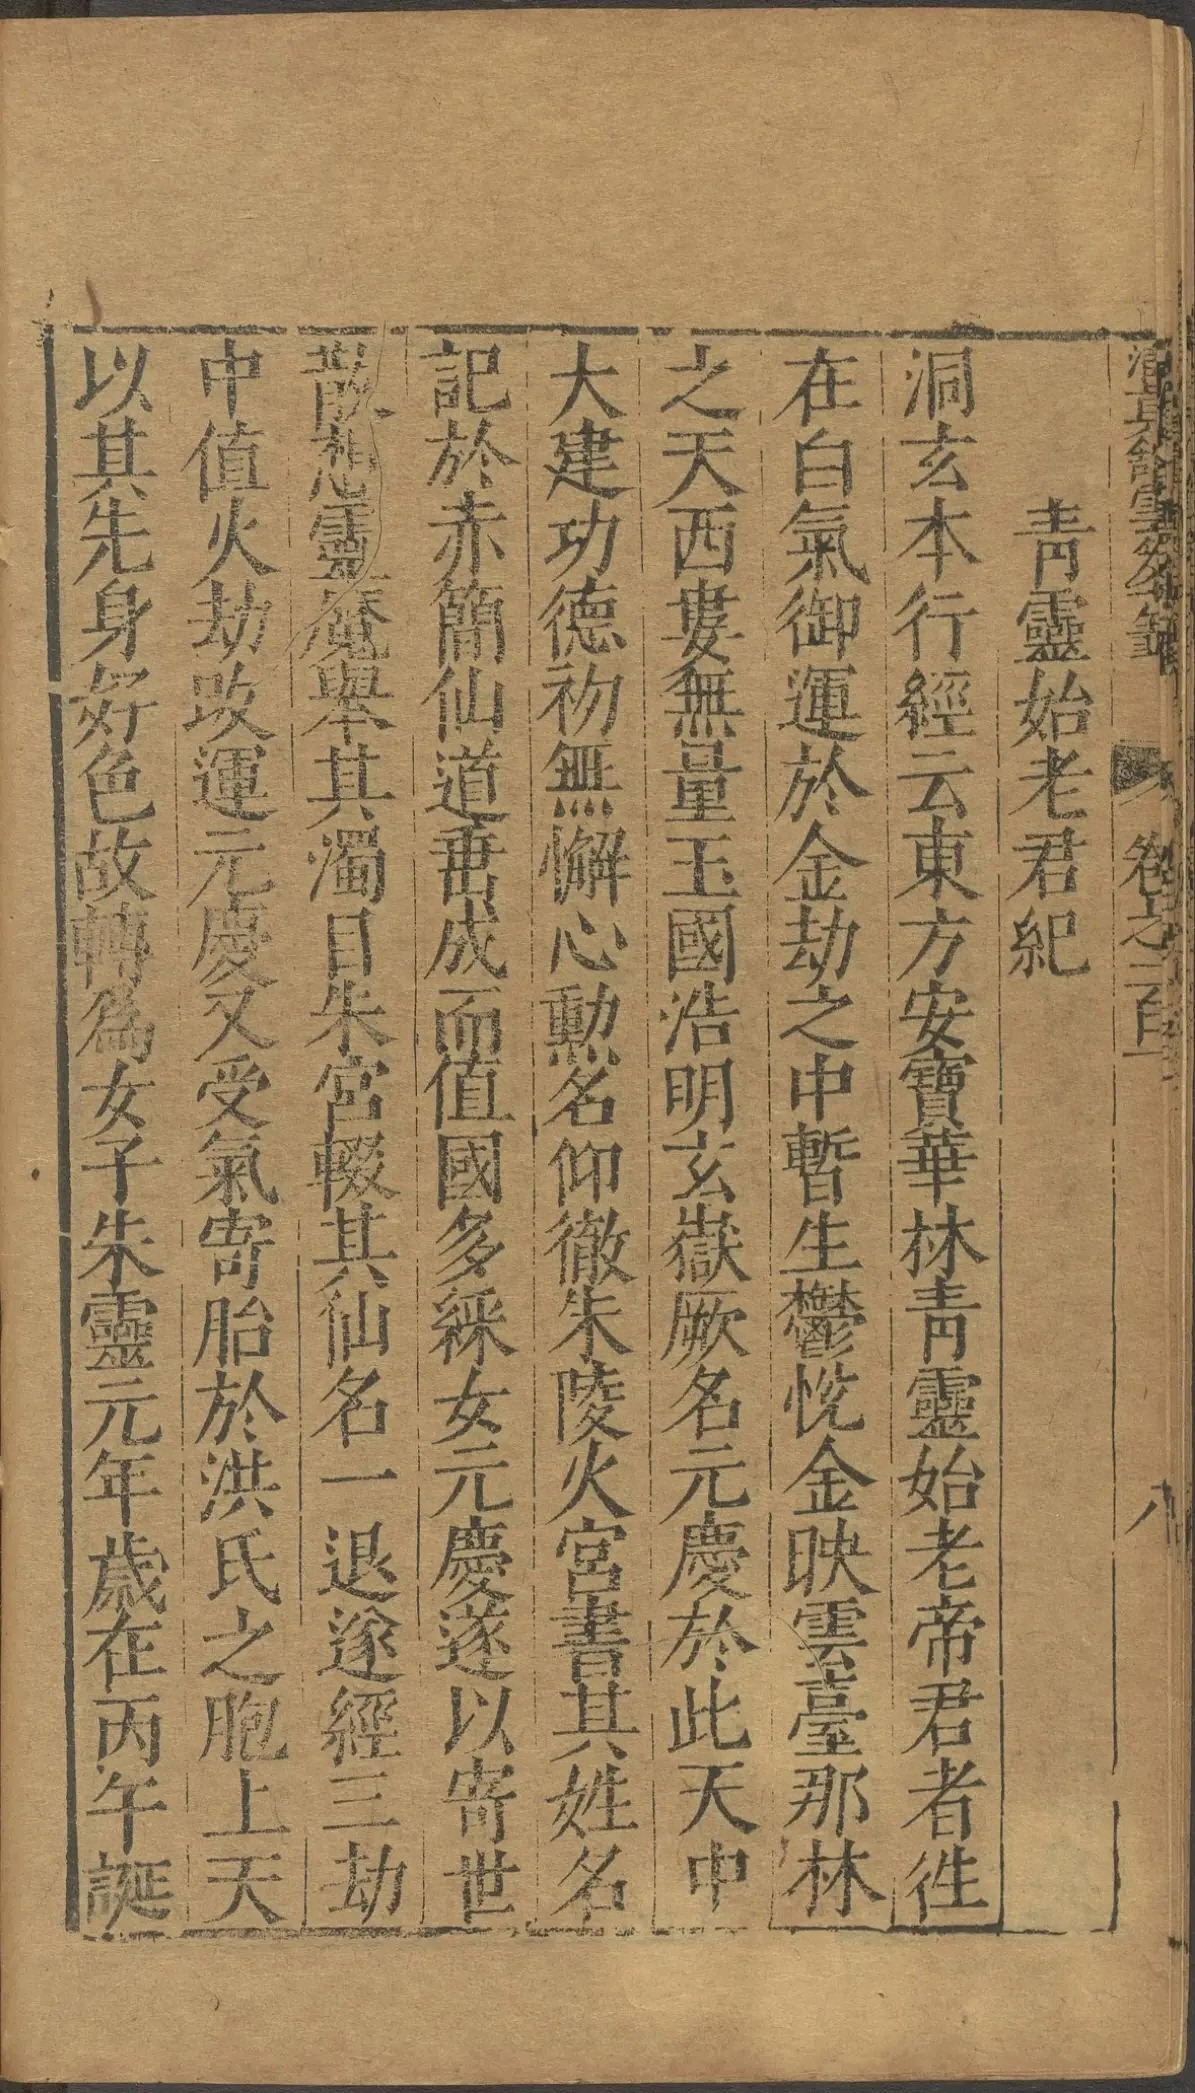 卷之一百一
八
青靈始老君紀
洞玄本行經云東方安寶華林青靈始老帝君者徃
在白氣御運於金劫之中暫生鬱悦金映雲臺那林
之天西婁無量玉國浩明玄嶽厥名元慶於此天中
大建功德初無懈心勳名仰徹朱陵火宮書其姓名
記於赤簡仙道垂成而值國多綵女元慶遂以寄世
散想靈魔舉其濁目朱宮輟其仙名一退遂經三劫
中值火劫改運元慶又受氣寄胎於洪氏之胞上天
以其先身好色故轉為女子朱靈元年歲在丙午誕